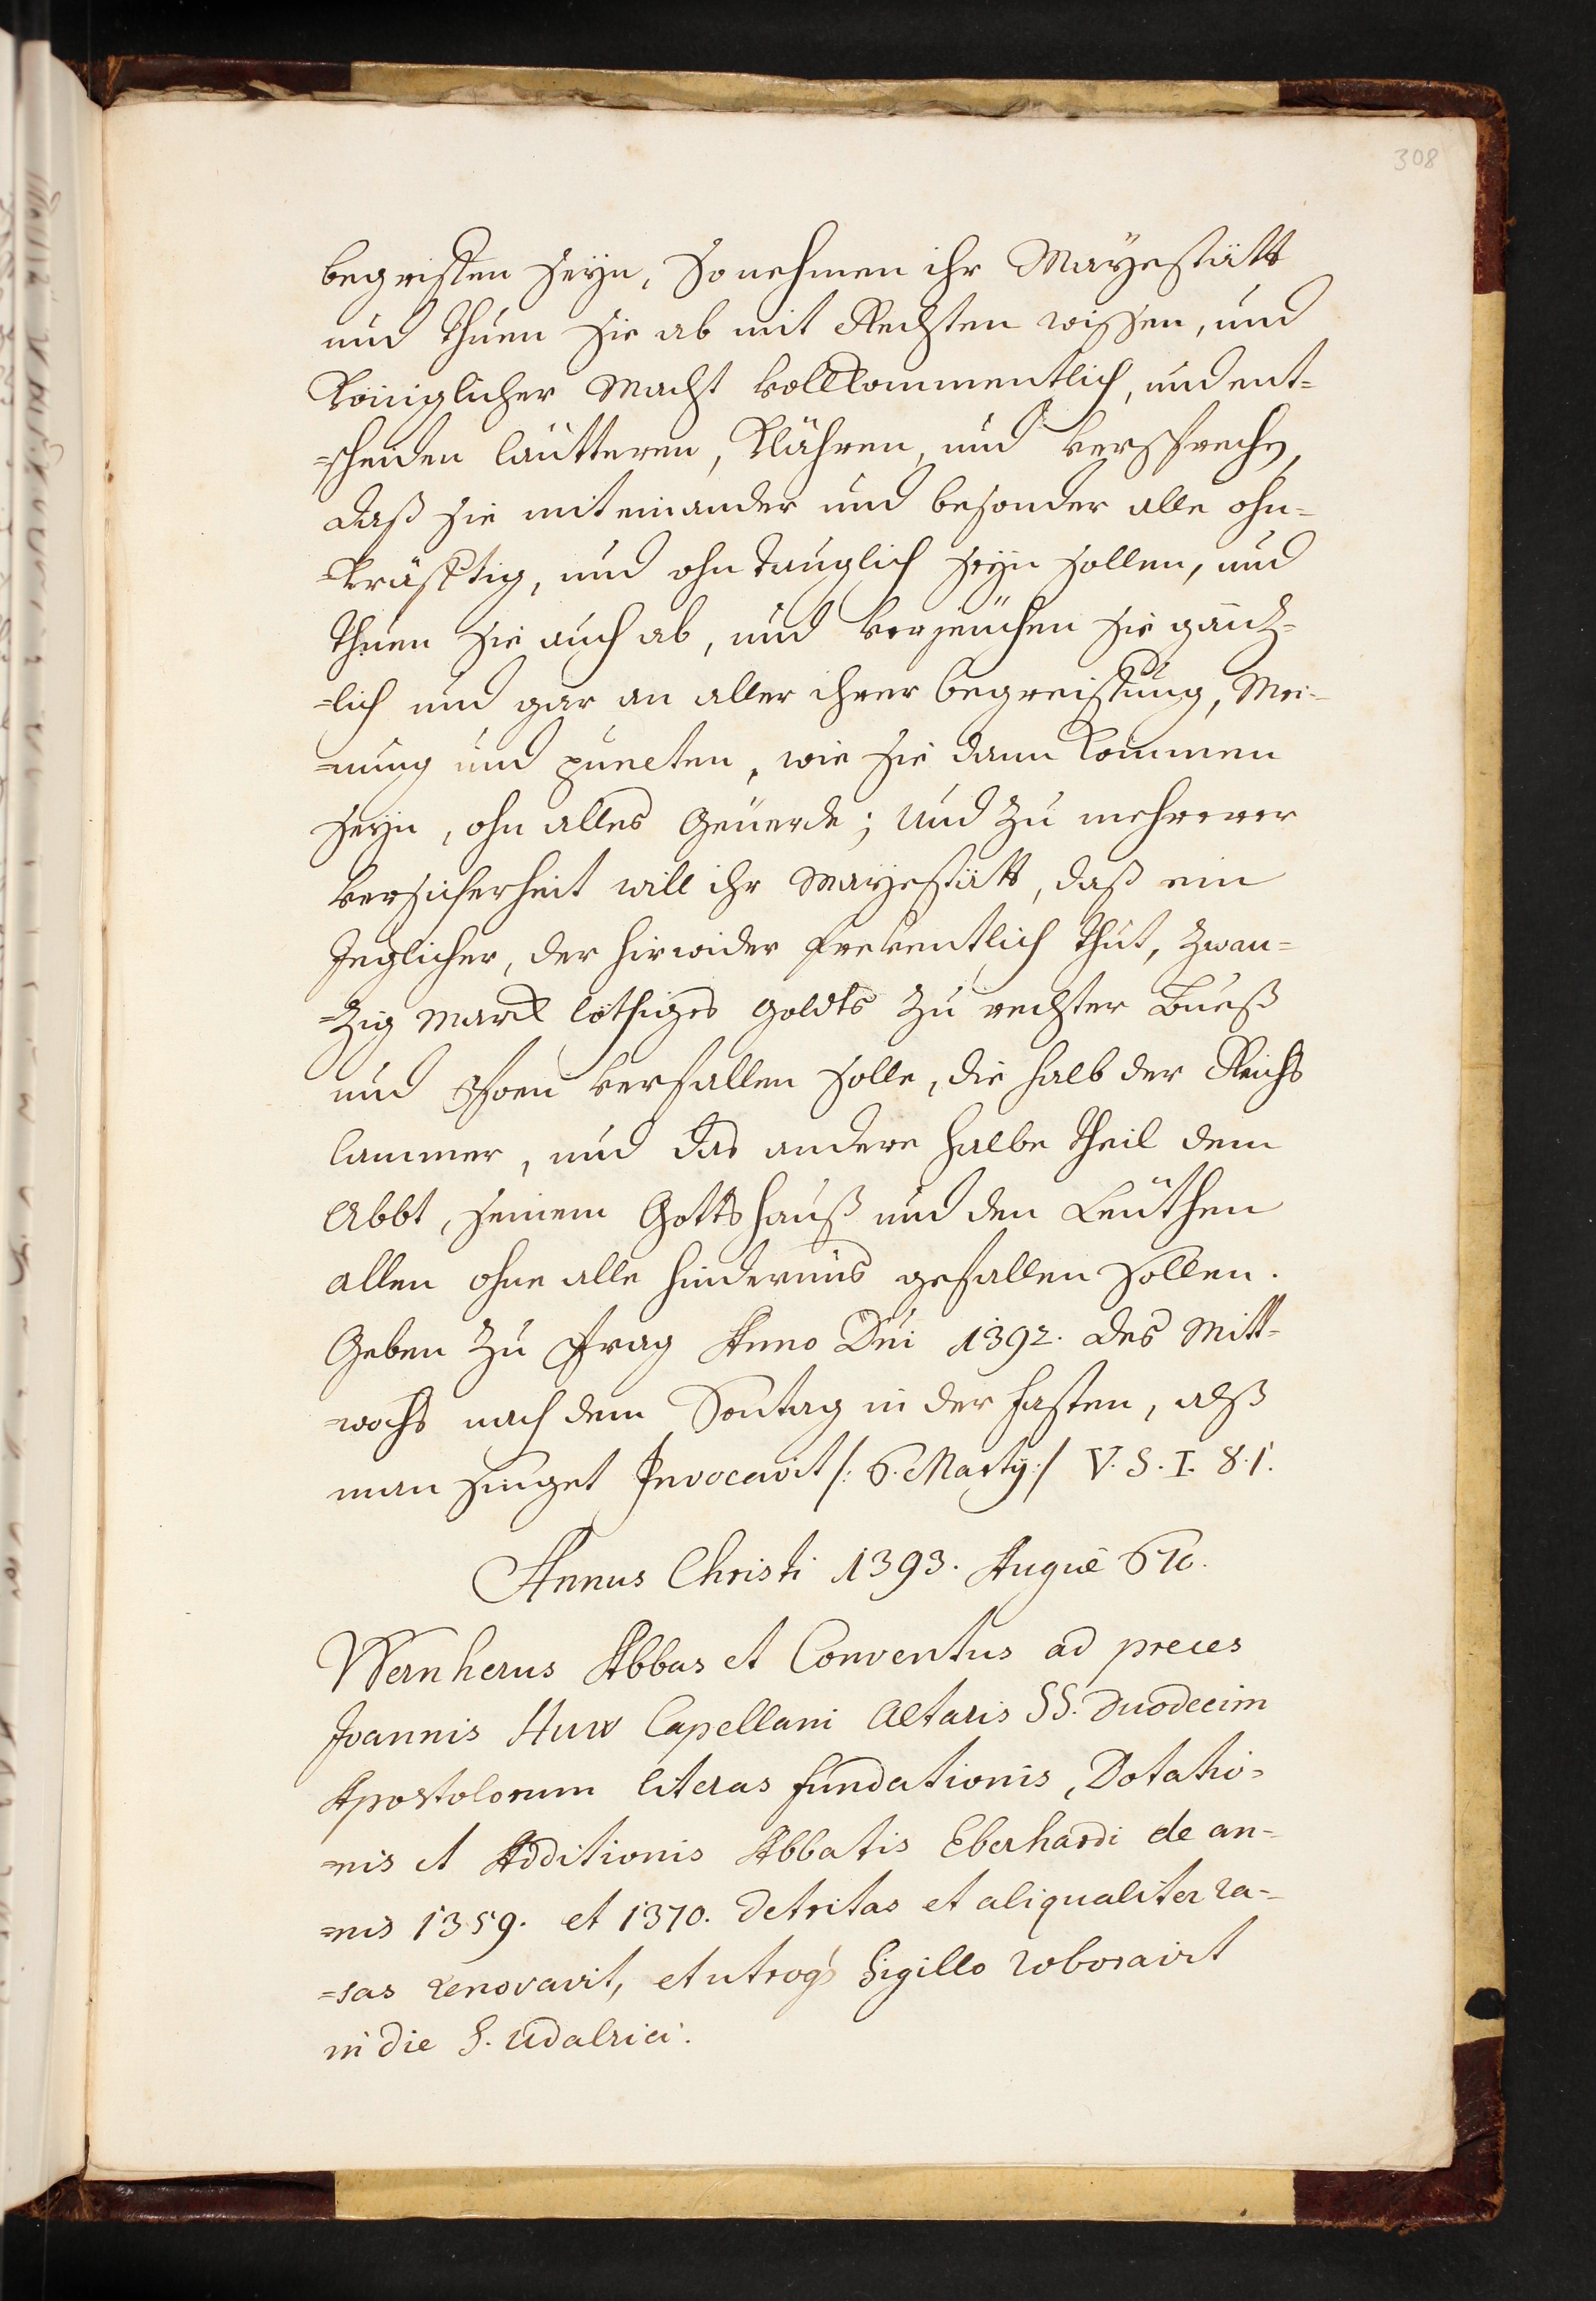 308
begriffen seÿn, So nehmen ihr Maÿestätt
und thuen sie ab mit Rechten wissen, und
Königlicher Macht vollkommentlich, und ent=
=scheiden läutteren, Klähren, und versprechen,
daß sie miteinander und besonder alle ohn=
=kräfftig, und ohn tauglich seÿn sollen, und
thuen sie auch ab, und verzeüchen sie gäntz=
=lich und gar an aller ihrer begreiffung, Mei=
=nung und puncten, wie sie dann kommen
seÿn, ohn alles Geüerde; Und zu mehrerer
versicherheit will ihr Maÿestätt, daß ein
Jeglicher, der hirwider freventlich thut, Zwan=
=zig Marck löthiges Goldts zu rechter Bueß
und Poen verfallen solle, die halb der Reichs
Cammer, und das andere halbe theil dem
Abbt, seinem Gottshauß und den Leüthen
allen ohne alle hindernüs gefallen sollen.
Geben zu Prag Anno Dni 1392. des Mitt=
=wochs nach dem Sontag in der fasten, alß
man singet Invocavit /: 6. Martÿ :/ V. S. I. 81.
Annus Christi 1393. Augiæ 670.
Wernherus Abbas et Conventus ad preces
Joannis Huw Capellani Altaris SS. Duodecim
Apostolorum literas fundationis, Dotatio=
=nis et Additionis Abbatis Eberhardi de an=
=nis 1359. et 1370. detritas et aliqualiter ra=
=sas renovavit, et utroq Sigillo roboravit
in die S. Udalrici.